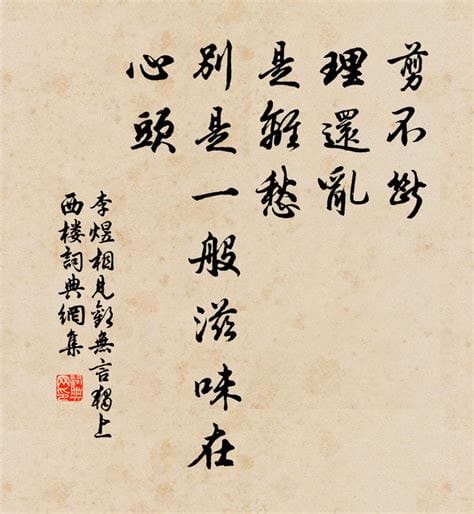 剪不斷
理還亂
是離愁
別是一般滋味在
心頭
李煜相見歡無言獨上
西楼詞典網集